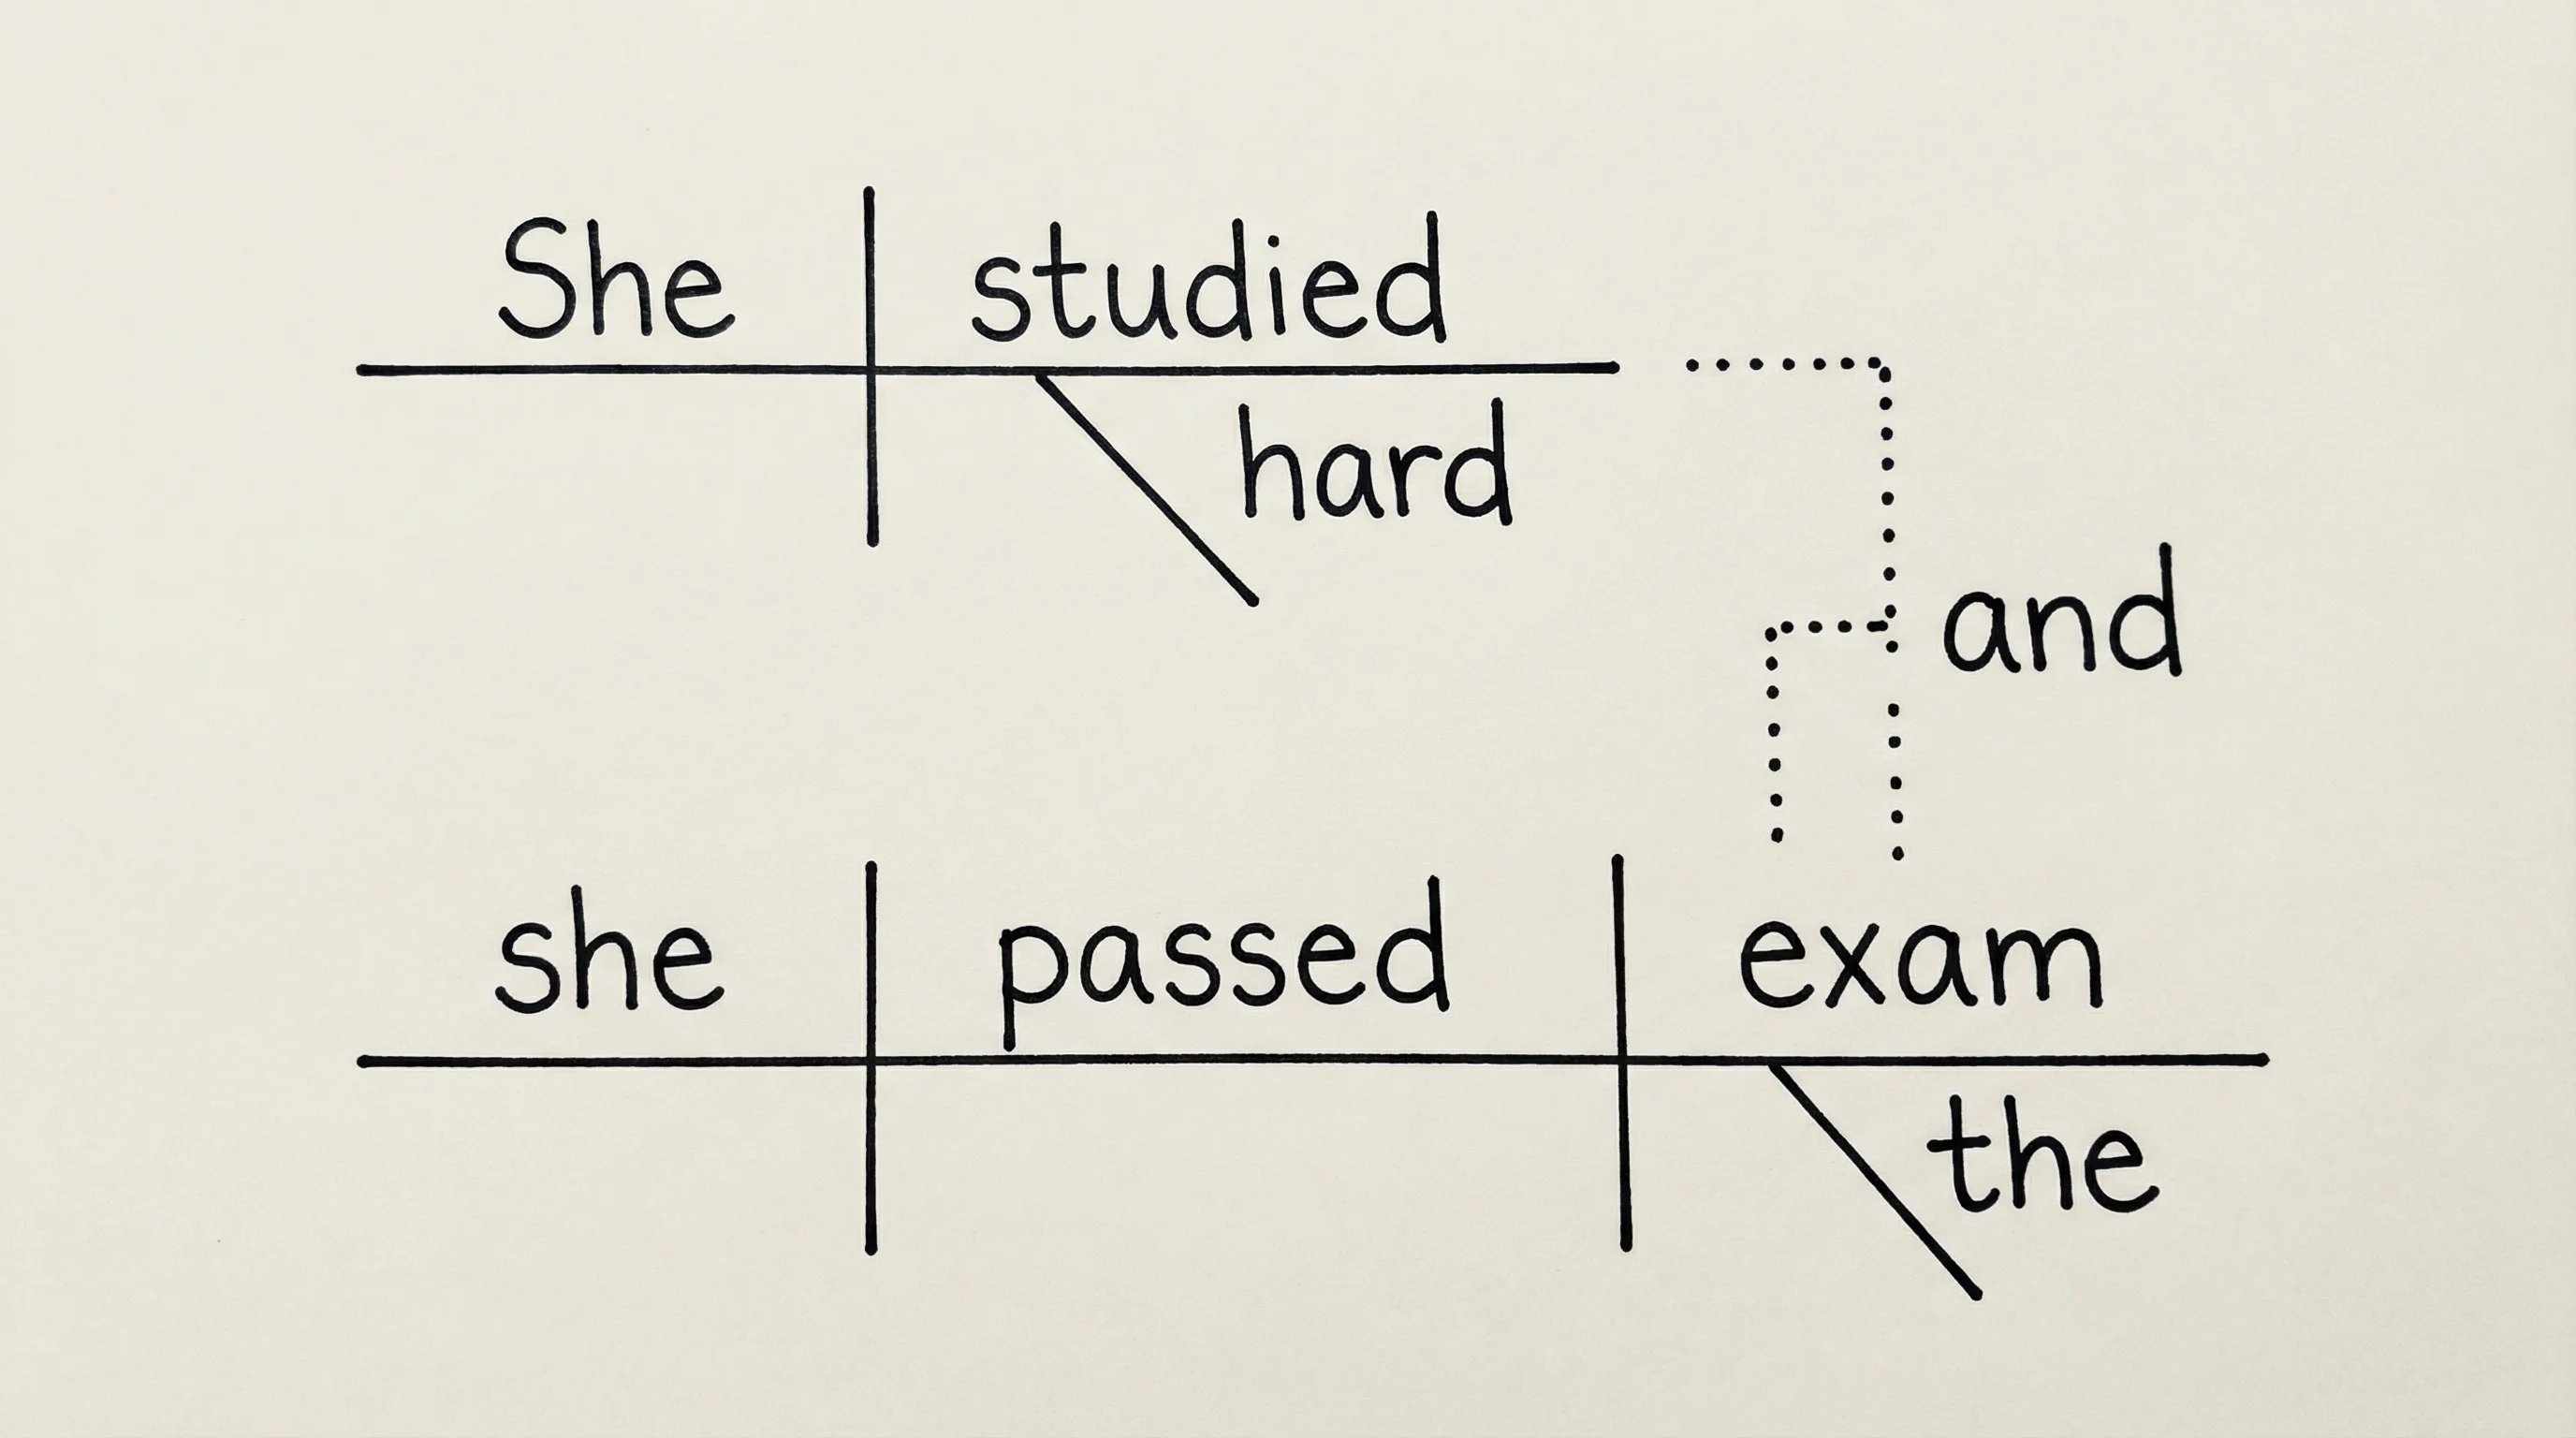 She studied
hard
and
she passed exam
the